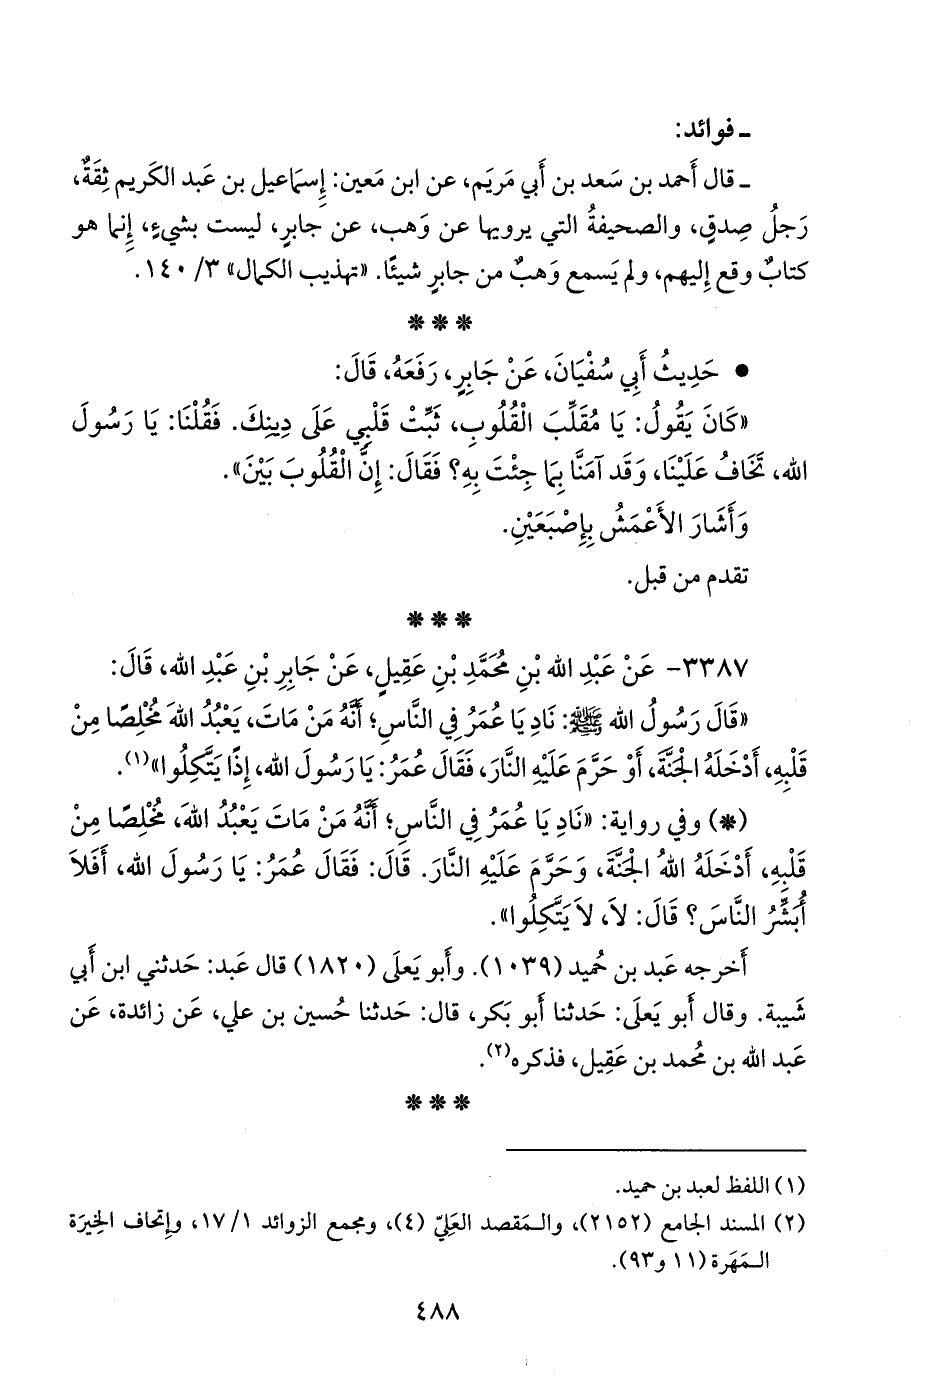 ـ فوائد:
ـ قال أَحمد بن سَعد بن أَبي مَريَم، عن ابن مَعين: إِسماعيل بن عَبد الكَريم ثِقَةٌ،
رَجلُ صِدقٍ، والصحيفةُ التي يرويها عن وَهب، عن جابرٍ، ليست بشيءٍ، إِنما هو
كتابٌ وقع إِليهم، ولم يَسمع وَهبٌ من جابرٍ شيئًا. «تهذيب الكمال» ٣/ ١٤٠.
* * *
● حَدِيثُ أَبِي سُفْيَانَ، عَنْ جَابِرٍ، رَفَعَهُ، قَالَ:
«كَانَ يَقُولُ: يَا مُقَلِّبَ الْقُلُوبِ، ثَبِّتْ قَلْبِي عَلَى دِينِكَ. فَقُلْنَا: يَا رَسُولَ
الله، تَخَافُ عَلَيْنَا، وَقَد آمَنَّا بِمَا جِئْتَ بِهِ؟ فَقَالَ: إِنَّ الْقُلُوبَ بَيْنَ».
وَأَشَارَ الأَعْمَشُ بِإِصْبَعَيْنِ.
تقدم من قبل.
* * *
٣٣٨٧- عَنْ عَبْدِ الله بْنِ مُحَمَّدِ بْنِ عَقِيلٍ، عَنْ جَابِرِ بْنِ عَبْدِ الله، قَالَ:
«قَالَ رَسُولُ الله ﷺ: نَادِ يَا عُمَرُ فِي النَّاسِ؛ أَنَّهُ مَنْ مَاتَ، يَعْبُدُ اللهَ مُخْلِصًا مِنْ
قَلْبِهِ، أَدْخَلَهُ الْجَنَّةَ، أَوْ حَرَّمَ عَلَيْهِ النَّارَ، فَقَالَ عُمَرُ: يَا رَسُولَ الله، إِذًا يَتَّكِلُوا»(١).
(*) وفي رواية: «نَادِ يَا عُمَرُ فِي النَّاسِ؛ أَنَّهُ مَنْ مَاتَ يَعْبُدُ اللهَ، مُخْلِصًا مِنْ
قَلْبِهِ، أَدْخَلَهُ اللهُ الْجَنَّةَ، وَحَرَّمَ عَلَيْهِ النَّارَ. قَالَ: فَقَالَ عُمَرُ: يَا رَسُولَ الله، أَفَلَا
أُبَشِّرُ النَّاسَ؟ قَالَ: لاَ، لاَ يَتَّكِلُوا».
أَخرجه عَبد بن حُميد (١٠٣٩). وأَبو يَعلَى (١٨٢٠) قال عَبد: حَدثني ابن أَبي
شَيبة. وقال أَبو يَعلَى: حَدثنا أَبو بَكر، قال: حَدثنا حُسين بن علي، عَن زائدة، عَن
عَبد الله بن مُحمد بن عَقِيل، فذكره(٢).
* * *
(١) اللفظ لعبد بن حميد.
(٢) المسند الجامع (٢١٥٢)، والـمَقصد العَلِيّ (٤)، ومجمع الزوائد ١/ ١٧، وإِتحاف الخِيرَة
الـمَهَرة (١١ و٩٣).
٤٨٨